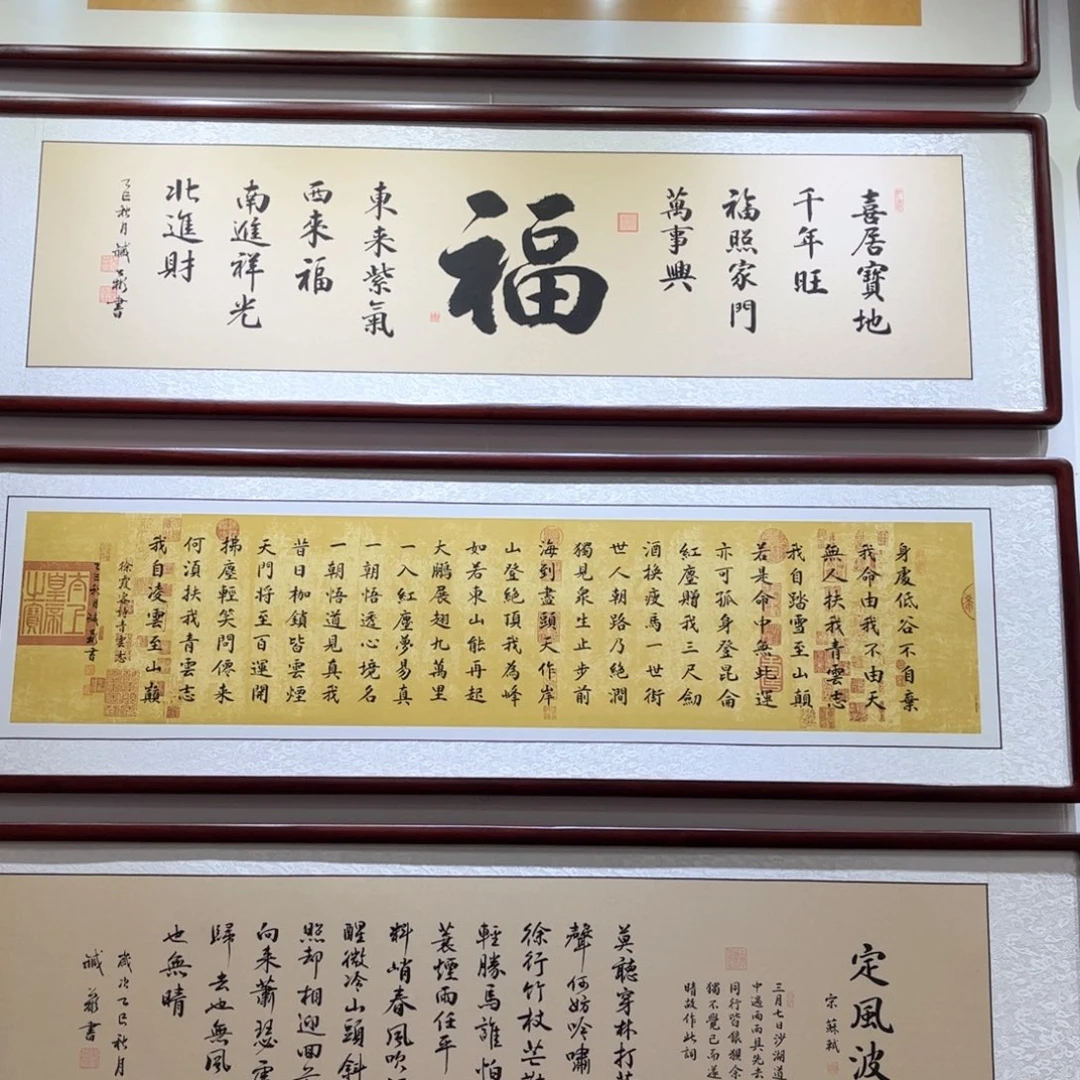 喜居寶地
千年旺
福照家門
萬事興
福
東来紫氣
西來福
南進祥光
北進財
乙巳秋月
書
身處低谷不自棄
我命由我不由天
無人扶我青雲志
我自踏雪至山巔
若是命中無此運
亦可孤身登昆侖
紅塵贈我三尺劍
酒換瘦馬一世街
世人朝路乃絕澗
獨見衆生止步前
海到盡頭天作岸
山登絕頂我為峰
如若東山能再起
大鵬展翅九萬里
一入紅塵夢易真
一朝悟透心境名
一朝悟道見真我
昔日枷鎖皆雲煙
天門將至百運開
拂塵輕笑問僊来
何須扶我青雲志
我自凌雲至山巔
徐霞客
青雲志
乙巳秋月
書
太上皇帝之寶
定風波
宋 蘇軾
三月七日沙湖道
中遇雨雨具先去
同行皆狼狽余
獨不覺已而遂
晴故作此詞
莫聽穿林打
聲何妨吟嘯
徐行竹杖芒
輕勝馬誰怕
蓑煙雨任平
料峭春風吹
醒微冷山頭斜
照却相迎回
向来蕭瑟
歸去也無風
也無晴
歲次乙巳秋月
書